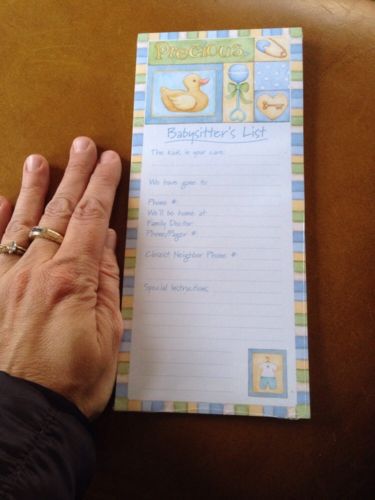 Precious
Babysitter's List
The kids in your care:
We have gone to:
Phone #:
We'll be home at:
Family Doctor:
Phone/Pager #:
Closest Neighbor Phone #:
Special Instructions: